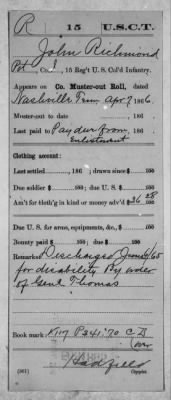 R 15 U.S.C.T.
John Richmond
Pvt, Co. I, 15 Reg't U.S. Col'd Infantry.
Appears on Co. Muster-out Roll, dated
Nashville Tenn Apr 7, 1866.
Muster-out to date , 186 .
Last paid to Pay due from , 186 .
Enlistment
Clothing account:
Last settled , 186 ; drawn since $ 100
Due soldier $ 100; due U.S. $ 100
Am't for cloth'g in kind or money adv'd $ 36 28 100
Due U.S. for arms, equipments, &c., $ 100
Bounty paid $ 100; due $ 100
Remarks: Discharged June /65
for disability By order
of Genl Thomas
Book mark: P 341 '70 C D
(over
Hadfield
(361) Copyist.